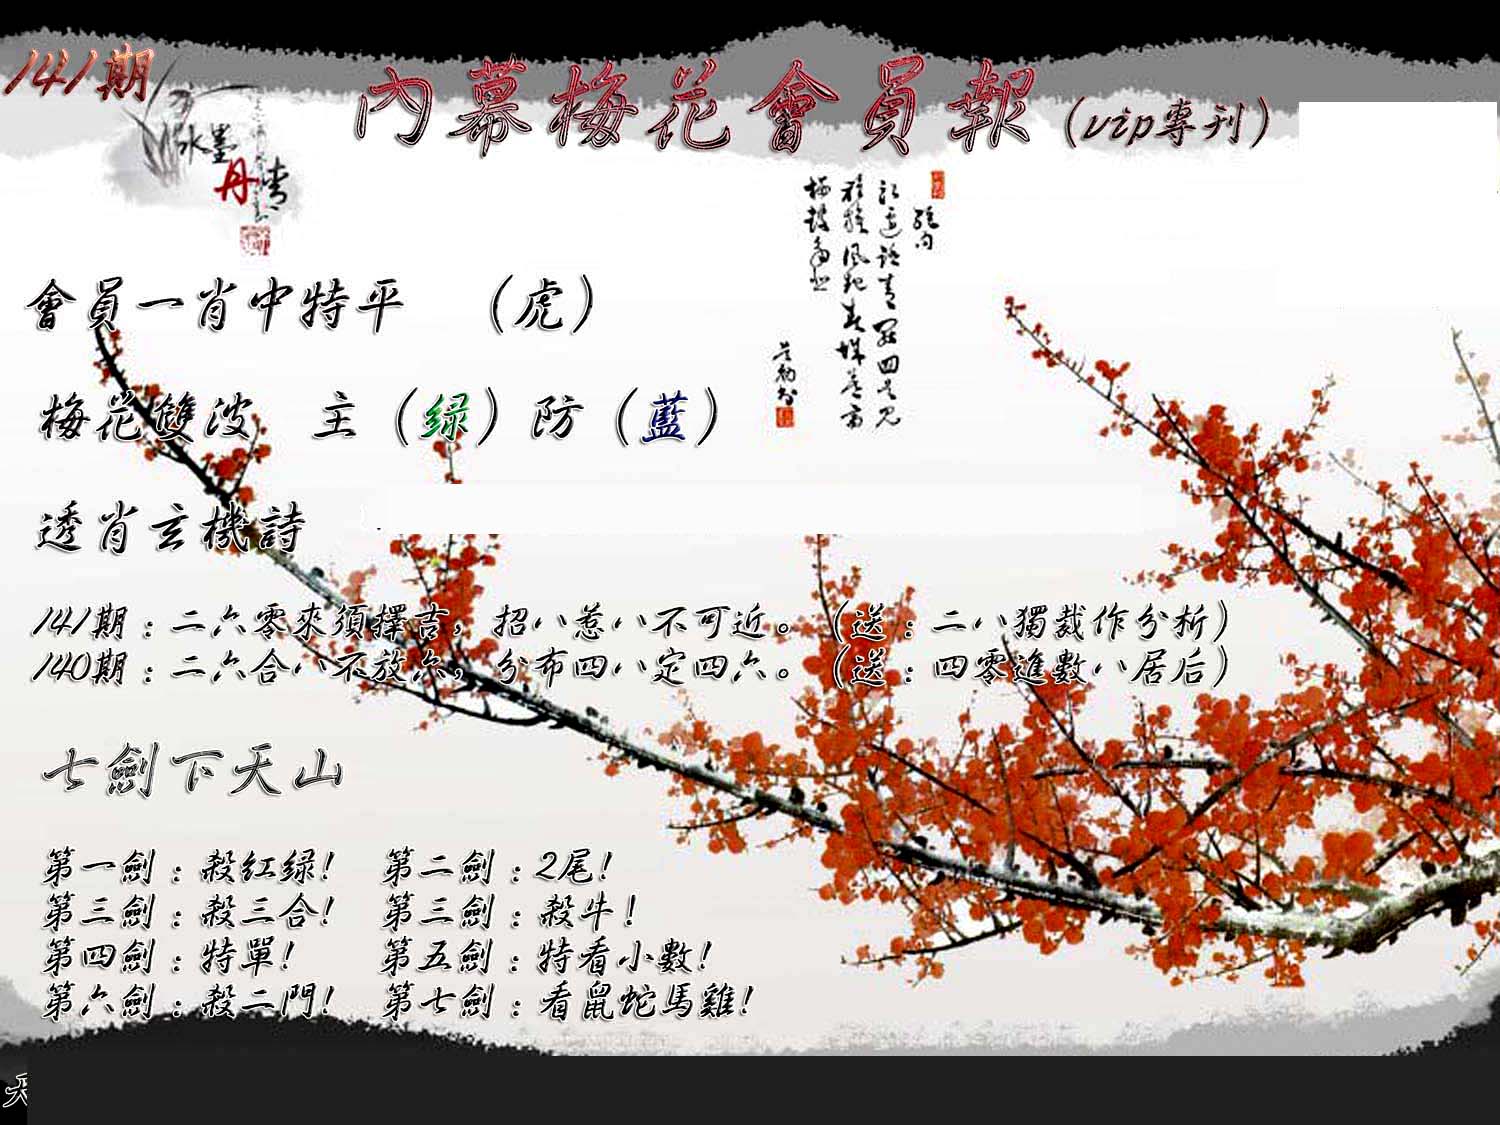 141期
內幕梅花會員報(vip專刊)
水墨
丹青
絕句
會員一肖中特平 (虎)
梅花雙波 主(绿)防(藍)
透肖玄機詩
141期:二六零來須擇吉,招八惹八不可近。(送:二八獨裁作分析)
140期:二六合八不放六,分布四八定四六。(送:四零進數八居后)
七劍下天山
第一劍:殺紅绿! 第二劍:2尾!
第三劍:殺三合! 第三劍:殺牛!
第四劍:特單! 第五劍:特看小數!
第六劍:殺二門! 第七劍:看鼠蛇馬雞!